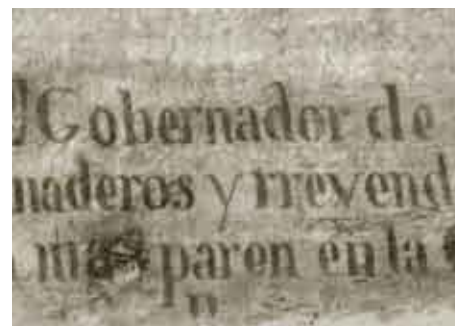 Gobernador de
naderos y rrevend
paren en la